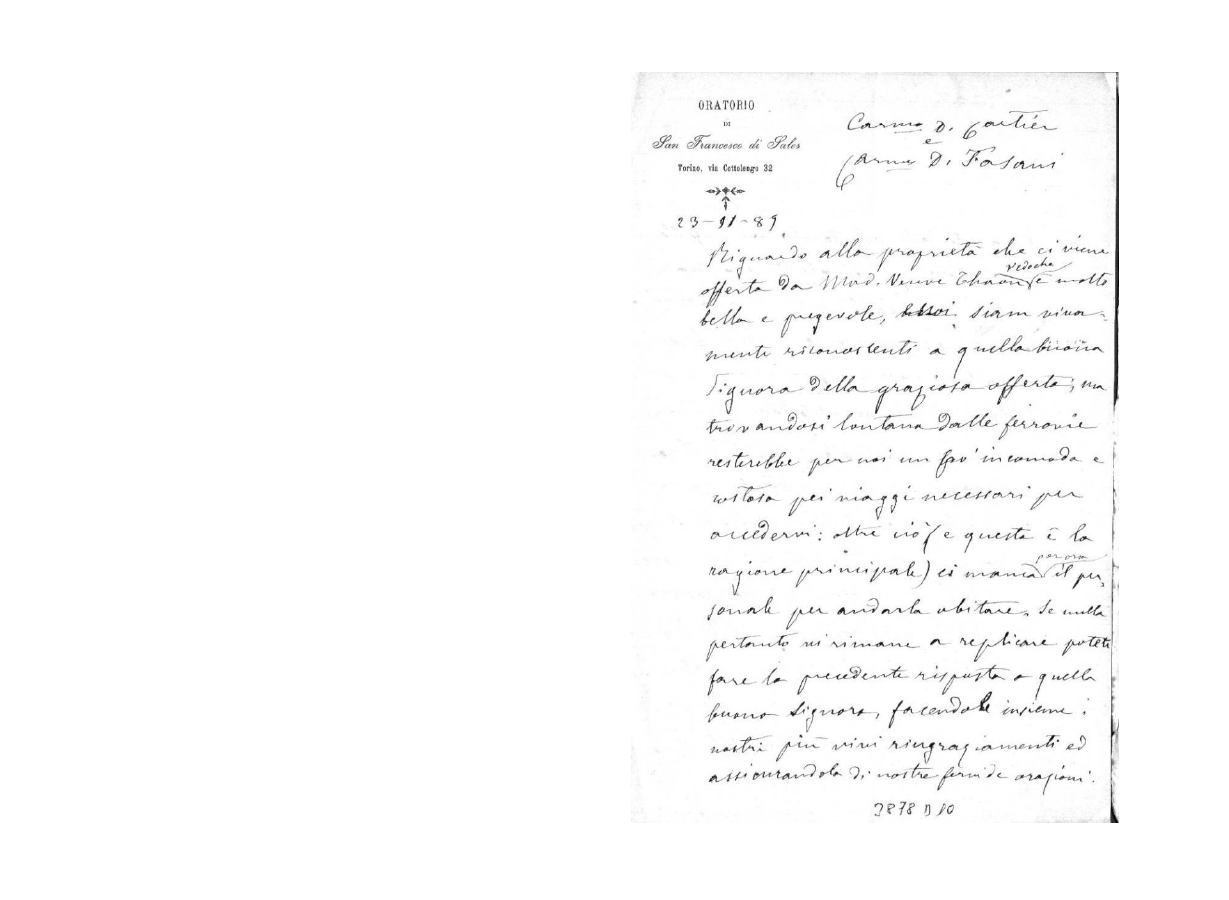 ORATORIO
DI
San Francesco di Sales
Torino, via Cottolengo 32
23-11-89
Carmo D. Cartier
e
Carmo D. Fasani
Riguardo alla proprietà che ci viene
offerta da Mad. Veuve Thaon, vedo che è molto
bella e pregevole, siam viva-
mente riconoscenti a quella buona
Signora della graziosa offerta; ma
trovandosi lontana dalle ferrovie
resterebbe per noi un po' incomoda e
costosa pei viaggi necessari per
accedervi: oltre ciò (e questa è la
ragione principale) ci manca per ora il per-
sonale per andarla abitare. Se nulla
pertanto vi rimane a replicare potete
fare la precedente risposta a quella
buona Signora, facendole insieme i
nostri più vivi ringraziamenti ed
assicurandola di nostre fervide orazioni.
3878 D 10